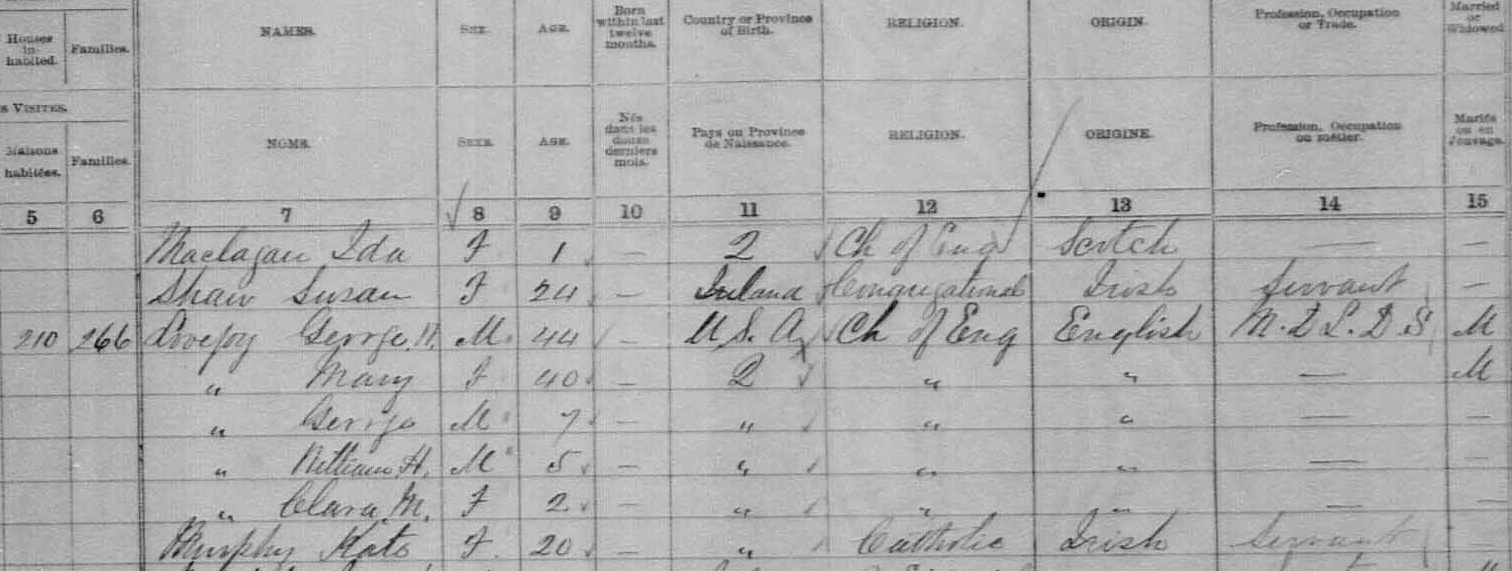 Houses in- habited. Families. NAMES. SEX. AGE. Born within last twelve months. Country or Province of Birth. RELIGION. ORIGIN. Profession, Occupation or Trade. Married or Widowed
S VISITES.
Maisons habitées. Familles. NOMS. SEXE. AGE. Nés dans les douze derniers mois. Pays ou Province de Naissance. RELIGION. ORIGINE. Profession, Occupation ou métier. Mariés ou en veuvage.
5 6 7 8 9 10 11 12 13 14 15
Maclagan Ida F 1 — Q Ch of Eng Scotch — —
Shaw Susan F 24 — Ireland Congregational Irish Servant —
210 266 Lovejoy George H. M 44 — U.S.A. Ch of Eng English M.D L.D.S M
" Mary F 40 — Q " " — M
" George M 7 — " " " — —
" William H. M 5 — " " " — —
" Clara M. F 2 — " " " — —
Murphy Kate F. 20 — " Catholic Irish Servant —